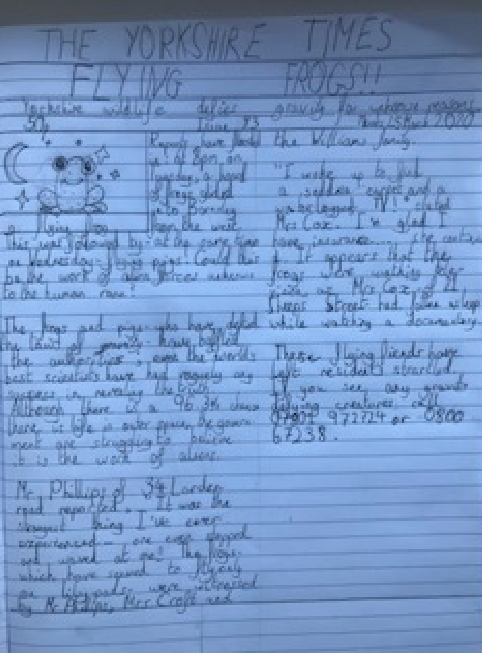 THE YORKSHIRE TIMES
FLYING FROGS!!
Yorkshire wildlife defies gravity for unknown reasons
50p Issue 23 15 April 2020
Reports have
at 8pm on
Tuesday, a
of frogs
into Barnsley
from the west.
a flying frog
This was followed by- at the same time
on Wednesday- flying pigs! Could this
be the work of alien forces unknown
to the human race?
The frogs and pigs who have defied
the laws of gravity have baffled
the authorities; even the world's
best scientists have had vaguely any
success in revealing the truth.
Although there is a 96.3% chance
there is life in outer space, the govern-
ment are struggling to believe
it is the work of aliens.
Mr Phillips of 34 Larden
road reported, "It was the
strangest thing I've ever
experienced- one even stopped
and waved at me! The frogs,
which have seemed to
on lilypads, were witnessed
by Mr Phillips, Mrs Croft and
the Williams family.
"I woke up to find
a sodden carpet and a
TV!" stated
Mrs Cox. "I'm glad I
have insurance..... she continue
d. It appears that the
frogs were watching
as Mrs Cox, of 21
Sheeps Street had fallen asleep
while watching a documentary.
These flying fiends have
left residents startled.
If you see any
flying creatures call
972724 or 0800
67238.